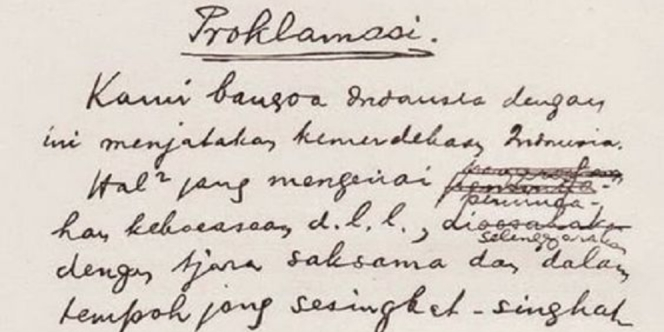 Proklamasi.
Kami bangsa Indonesia dengan
ini menjatakan kemerdekaan Indonesia.
Hal² jang mengenai
peminda-
han kekoeasaan d.l.l.,
diselenggarakan
dengan tjara saksama dan dalam
tempoh jang sesingkat-singkat